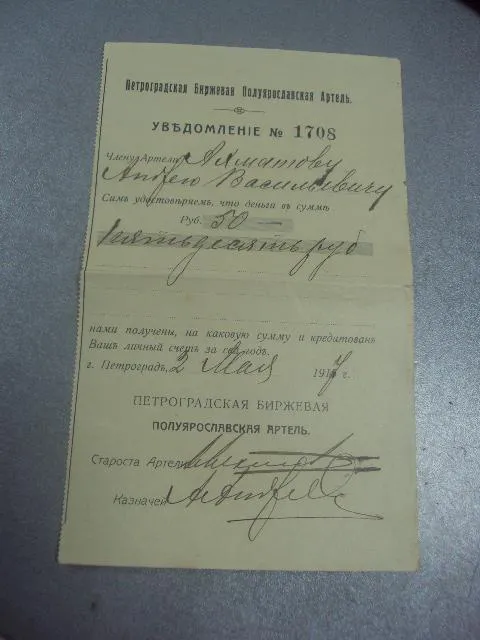 Петроградская Биржевая Полуярославская Артель.
УВѢДОМЛЕНІЕ № 1708
Члену Артели Ахматову
Андрею Васильевичу
Симъ удостовѣряемъ, что деньги въ суммѣ
Руб. 50 —
пятьдесятъ руб
нами получены, на каковую сумму и кредитованъ
Вашъ личный счетъ за сей годъ.
г. Петроградъ, 2 Мая 1917 г.
ПЕТРОГРАДСКАЯ БИРЖЕВАЯ
ПОЛУЯРОСЛАВСКАЯ АРТЕЛЬ.
Староста Артели
Казначей